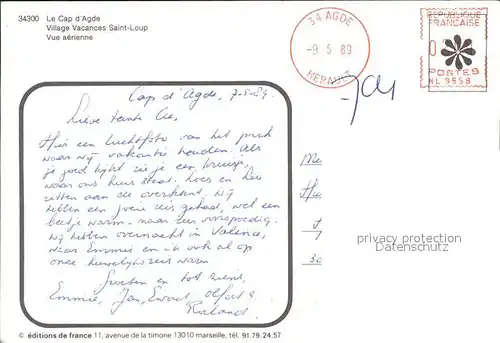 34300 Le Cap d'Agde
Village Vacances Saint-Loup
Vue aérienne
34 AGDE
-9 5 89
HERAULT
REPUBLIQUE
FRANCAISE
0
POSTES
NL 9558
Cap d'Agde, 7-5-89.
Lieve tante Cie,
Hier een luchtfoto van het park
waar wij vakantie houden. Als
je goed kijkt zie je een kruisje,
waar ons huis staat. Loes en
zitten aan de overkant. Wij
hebben een goeie reis gehad, wel een
beetje warm - maar zeer voorspoedig.
Wij hebben overnacht in Valence,
waar Emmie en ik ook al op
onze huwelijksreis waren
Groeten en tot ziens,
Emmie, Jan, Ewout, &
Roeland.
privacy protection
Datenschutz
© éditions de france 11, avenue de la timone 13010 marseille, tél. 91.79.24.57